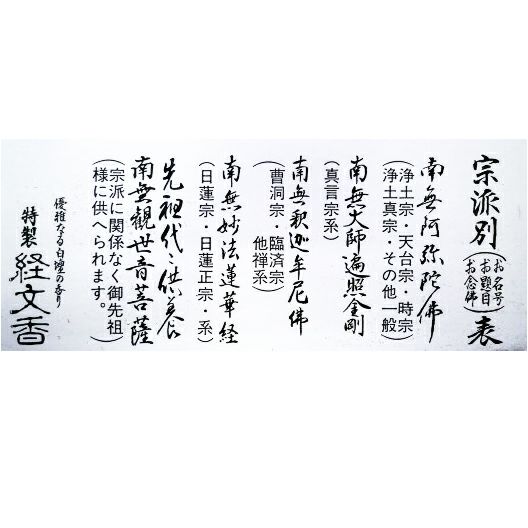 宗派別(お名号 お題目 お念佛)表
南無阿弥陀佛
(浄土宗・天台宗・時宗
浄土真宗・その他一般)
南無大師遍照金剛
(真言宗系)
南無釈迦牟尼佛
(曹洞宗・臨済宗
他禅系)
南無妙法蓮華経
(日蓮宗・日蓮正宗・系)
先祖代々供養
南無觀世音菩薩
(宗派に関係なく御先祖
様に供へられます。)
優雅なる白檀の香り
特製 経文香